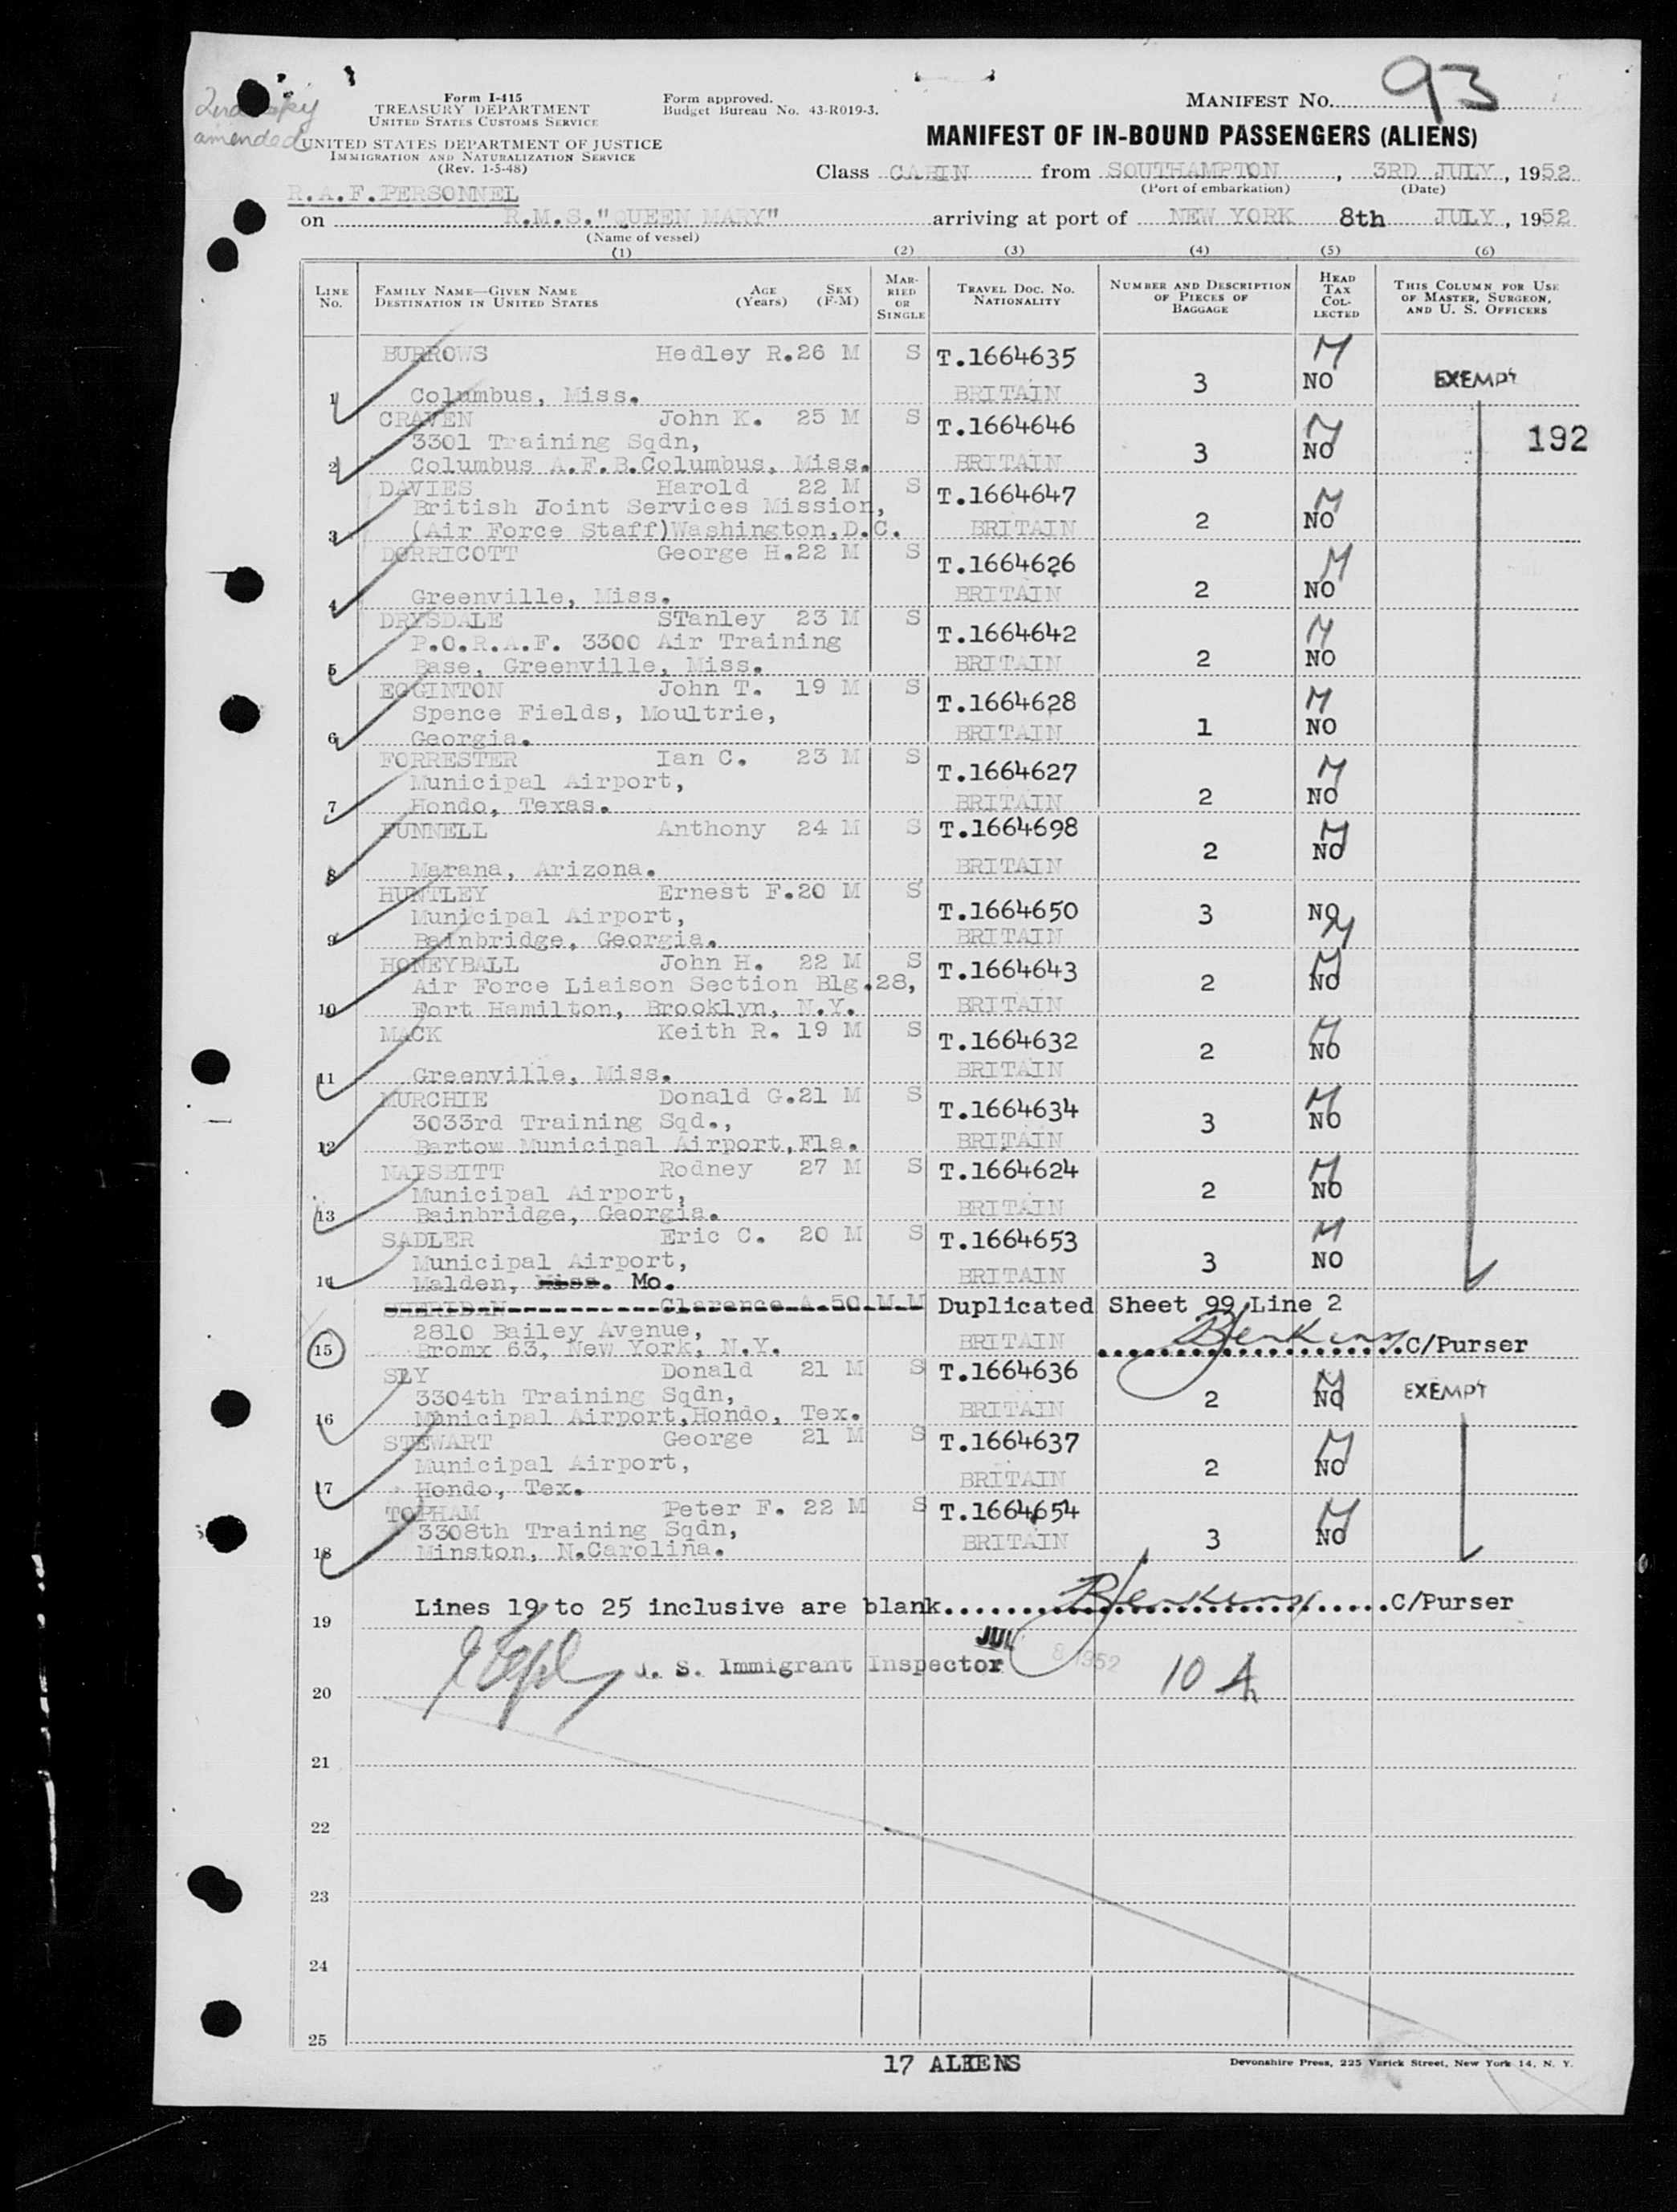 2nd copy
amended
Form I-415
TREASURY DEPARTMENT
UNITED STATES CUSTOMS SERVICE
UNITED STATES DEPARTMENT OF JUSTICE
IMMIGRATION AND NATURALIZATION SERVICE
(Rev. 1-5-48)
Form approved.
Budget Bureau No. 43-R019-3.
MANIFEST No. 93
MANIFEST OF IN-BOUND PASSENGERS (ALIENS)
Class CABIN from SOUTHAMPTON, 3RD JULY, 1952
(Port of embarkation) (Date)
R.A.F.PERSONNEL
on R.M.S."QUEEN MARY" arriving at port of NEW YORK 8th JULY, 1952
(Name of vessel)
(1) (2) (3) (4) (5) (6)
LINE No. FAMILY NAME—GIVEN NAME DESTINATION IN UNITED STATES AGE (Years) SEX (F-M) MARRIED OR SINGLE TRAVEL DOC. NO. NATIONALITY NUMBER AND DESCRIPTION OF PIECES OF BAGGAGE HEAD TAX COLLECTED THIS COLUMN FOR USE OF MASTER, SURGEON, AND U. S. OFFICERS
BURROWS Hedley R. 26 M S T.1664635 M
3 NO EXEMPT
1 Columbus, Miss. BRITAIN
CRAVEN John K. 25 M S T.1664646 M
3301 Training Sqdn, 3 NO 192
2 Columbus A.F.B.Columbus, Miss. BRITAIN
DAVIES Harold 22 M S T.1664647 M
British Joint Services Mission, 2 NO
3 (Air Force Staff)Washington,D.C. BRITAIN
DORRICOTT George H. 22 M S T.1664626 M
2 NO
4 Greenville, Miss. BRITAIN
DRYSDALE STanley 23 M S T.1664642 M
P.O.R.A.F. 3300 Air Training
5 Base, Greenville, Miss. BRITAIN 2 NO
EGGINTON John T. 19 M S T.1664628 M
Spence Fields, Moultrie,
6 Georgia. BRITAIN 1 NO
FORRESTER Ian C. 23 M S T.1664627 M
Municipal Airport,
7 Hondo, Texas. BRITAIN 2 NO
FUNNELL Anthony 24 M S T.1664698 M
2 NO
8 Marana, Arizona. BRITAIN
HUNTLEY Ernest F. 20 M S T.1664650
Municipal Airport, 3 NO
9 Bainbridge, Georgia. BRITAIN M
HONEYBALL John H. 22 M S T.1664643 M
Air Force Liaison Section Blg.28, 2 NO
10 Fort Hamilton, Brooklyn, N.Y. BRITAIN
MACK Keith R. 19 M S T.1664632 M
2 NO
11 Greenville, Miss. BRITAIN
MURCHIE Donald G. 21 M S T.1664634 M
3033rd Training Sqd., 3 NO
12 Bartow Municipal Airport,Fla. BRITAIN
NAISBITT Rodney 27 M S T.1664624 M
Municipal Airport, 2 NO
13 Bainbridge, Georgia. BRITAIN
SADLER Eric C. 20 M S T.1664653 M
Municipal Airport, 3 NO
14 Malden, Miss. Mo. BRITAIN
SHERIDAN Clarence A. 50 M M Duplicated Sheet 99 Line 2
2810 Bailey Avenue, BRITAIN BJenkins C/Purser
15 Bromx 63, New York, N.Y.
SLY Donald 21 M S T.1664636 M
3304th Training Sqdn, 2 NO EXEMPT
16 Municipal Airport,Hondo, Tex. BRITAIN
STEWART George 21 M S T.1664637 M
Municipal Airport, 2 NO
17 Hondo, Tex. BRITAIN
TOPHAM Peter F. 22 M S T.1664654 M
3308th Training Sqdn, 3 NO
18 Minston, N.Carolina. BRITAIN
19 Lines 19 to 25 inclusive are blank BJenkins C/Purser
JUL 8 1952
U. S. Immigrant Inspector 10 A
20
21
22
23
24
25
17 ALIENS
Devonshire Press, 225 Varick Street, New York 14, N. Y.